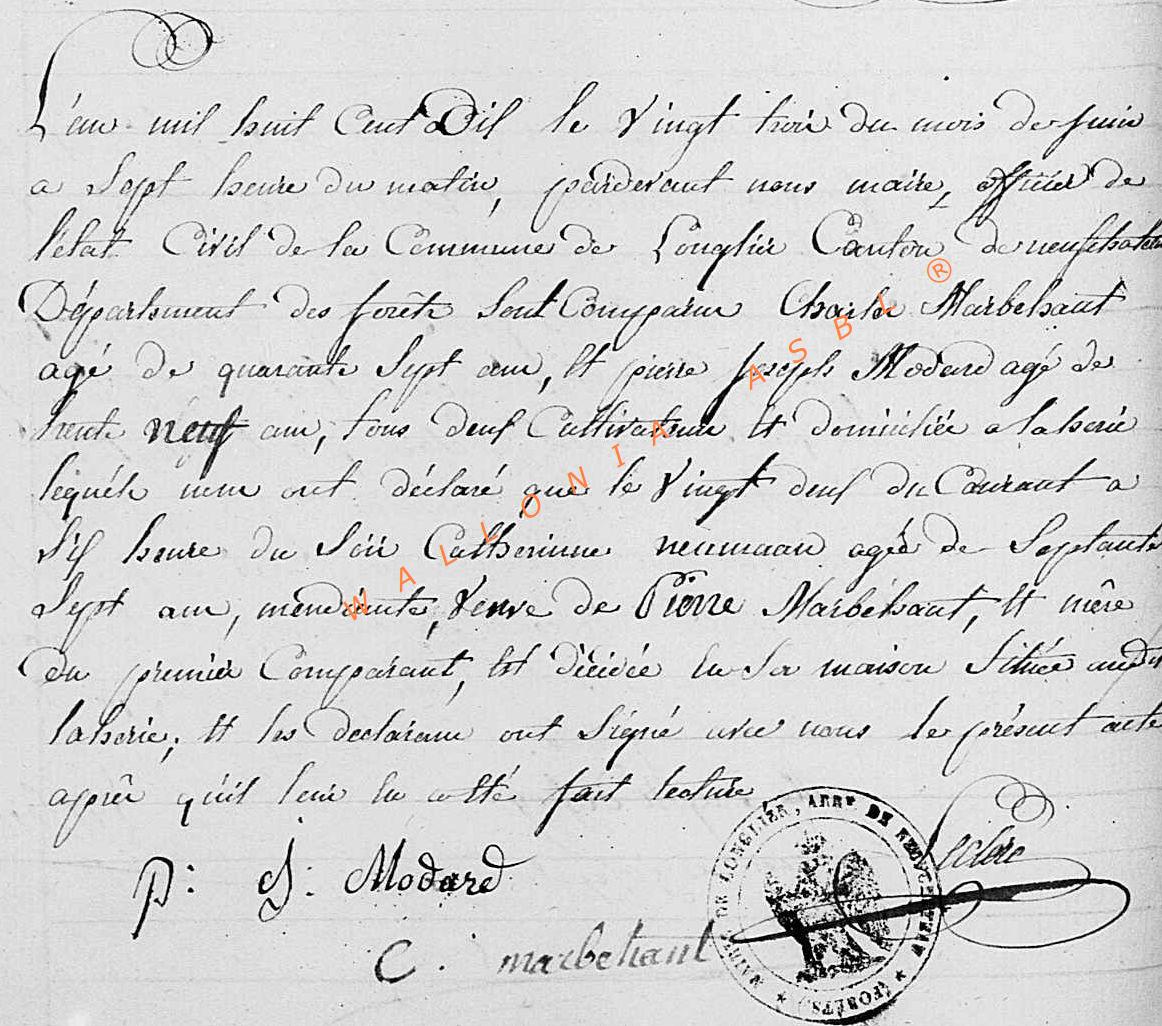 L'an mil huit Cent Dix le Vingt trois du mois de juin
a Sept heure du matin, pardevant nous maire, officier de
l'état Civil de la Commune de Longlier Canton de neufchateau
Département des forêts Sont Comparu Charle Marbehant
agé de quarante Sept ans, et pierre joseph Modard agé de
trente neuf ans, tous deux Cultivateurs et domiciliée a laherie
lequéls nous ont déclaré que le Vingt deux du Courant a
Six heure du Soir Catherinne neumaan agée de Septante
Sept ans, mendiante, Veuve de Pierre Marbéhant, et mêre
du premier Comparant, est décédée en sa maison Située audit
laherie, et les declarans ont Signé avec nous le présent acte
aprês qu'il leur en a été fait lecture
Leclere
p: J: Modard
C. marbehant
MAIRIE DE LONGLIER, ARRT DE NEUFCHATEAU
(FORÊTS)
WALLONIA ASBL ®